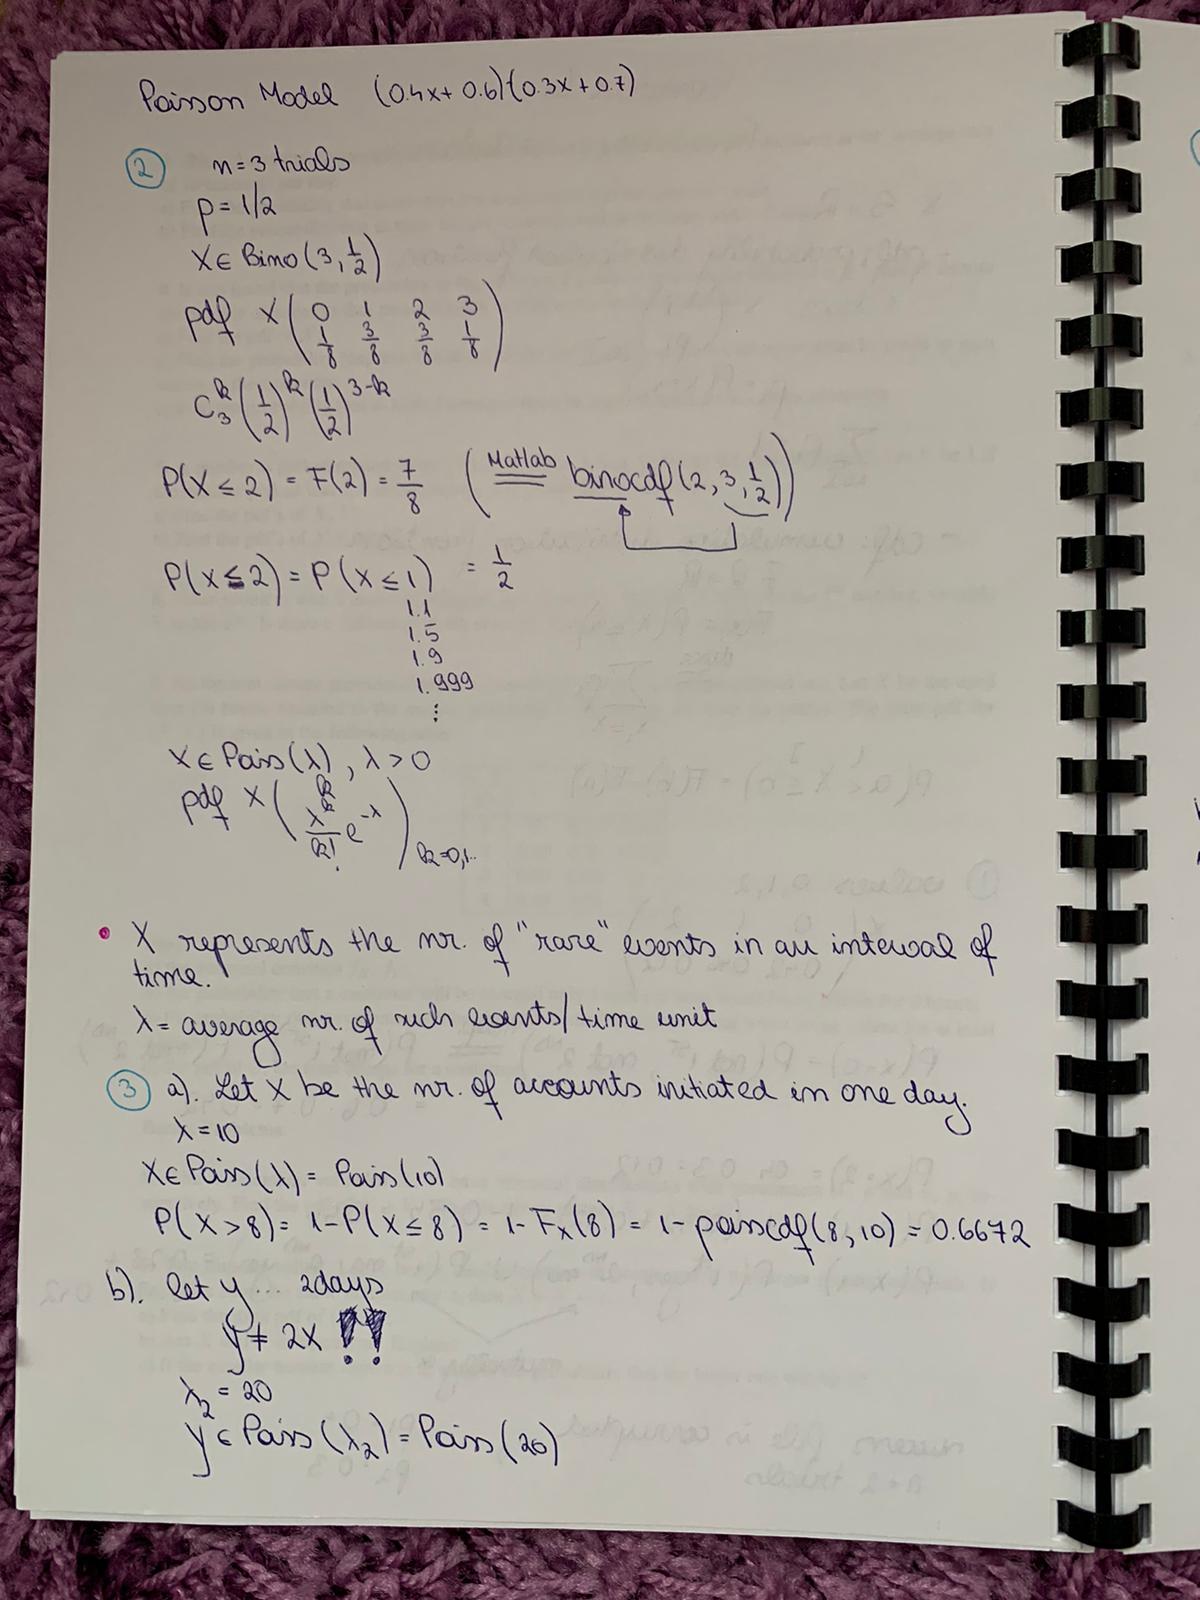 Poisson Model (0.4x+0.6)(0.3x+0.7)
② n=3 trials
p=1/2
X∈Bino(3, 1/2)
pdf X ( 0 1 2 3
1/8 3/8 3/8 1/8 )
C₃ᵏ (1/2)ᵏ (1/2)³⁻ᵏ
P(X≤2) = F(2) = 7/8 (Matlab binocdf(2,3,1/2))
P(X≤2) = P(X≤1) = 1/2
1.1
1.5
1.9
1.999
⋮
X∈Poiss(λ), λ>0
pdf X ( k
λᵏ/k! e^-λ ) k=0,1..
• X represents the nr. of "rare" events in an interval of
time.
λ= average nr. of such events/time unit
③ a). Let X be the nr. of accounts initiated in one day.
λ=10
X∈Poiss(λ) = Poiss(10)
P(X>8) = 1-P(X≤8) = 1-Fₓ(8) = 1-poisscdf(8,10) = 0.6672
b). let y ... 2days
y≠2X !!
λ₂ = 20
y∈Poiss(λ₂) = Poiss(20)